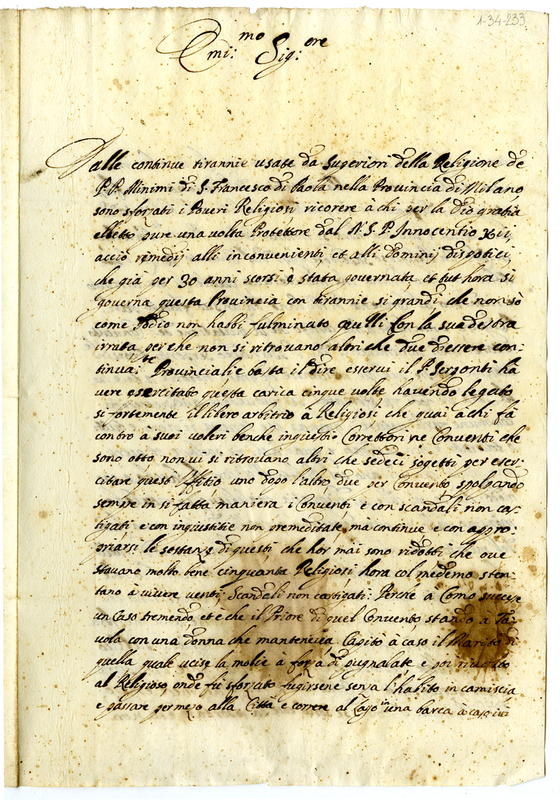 1-34-233
Emi:mo Sig:ore
Dalle continue tirannie usate da Superiori della Religione de
P.P. Minimi di S. Francesco di Paola nella Provincia di Milano
sono sforzati i Poveri Religiosi ricorere à chi per la Dio gratia
eletto pure una volta Protettore dal N. S. P. Innocentio
acciò rimedij alli inconvenienti et alli dominij dispotici,
che già per 30 anni scorsi è stata governata et hora si
governa questa Provincia con tirannie si grandi che non sò
come Iddio non habbi fulminato quelli con la sua destra
perche non si ritrovano altri che due d'essere con-
Provinciali e basta il dire esservi il P. Serponti ha
vere esercitato questa carica cinque volte havendo legato
si fortemente il libero arbitrio à Religiosi, che guai à chi fà
contro à suoi voleri benche ingiusti Correttori ne Conventi che
sono otto non vi si ritrovano altri che sedeci sogetti per eser-
citare quest'Uffitio uno dopo l'altro, due per Convento spolpando
sempre in si fatta maniera i Conventi e con scandali non cas-
tigati e con ingiustitie non premeditate, ma continue e con appro-
priarsi le sostanze di questi che hor mai sono ridotti, che ove
stavano molto bene cinquanta Religiosi hora col medemo sten-
tano à vivere venti. Scandali non castigati: Perche à Como successe
un Caso tremendo, et è che il Priore di quel Convento stando à Ta-
vola con una donna che manteneva Capitò à caso il Marito di
quella quale ucise la molie à forza di pugnalate e poi
al Religioso, onde fù sforzato fugirsene senza l'habito in camiscia
e passare per mezo alla Città e correre al Lago in una barca à caso ivi